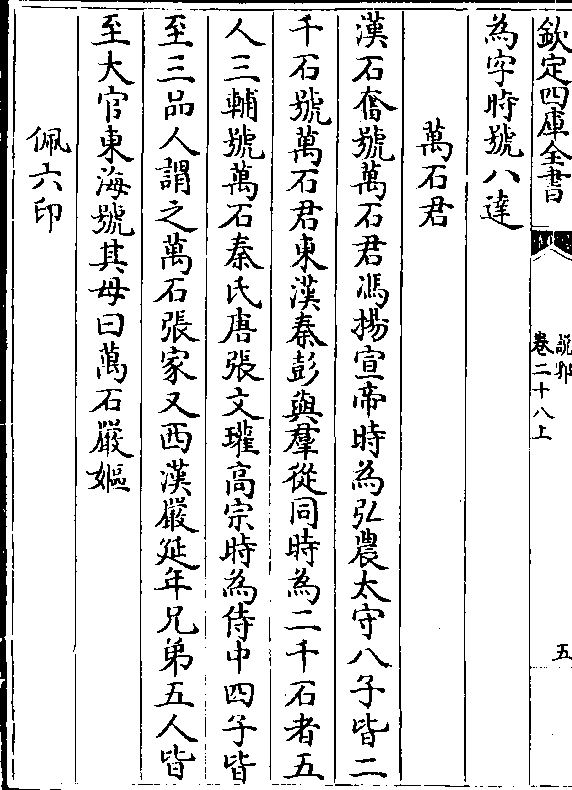 欽定四庫全書
說郛
卷二十八上
五
為字時號八達
萬石君
漢石奮號萬石君馮揚宣帝時為弘農太守八子皆二
千石號萬石君東漢秦彭與羣從同時為二千石者五
人三輔號萬石秦氏唐張文瓘高宗時為侍中四子皆
至三品人謂之萬石張家又西漢嚴延年兄弟五人皆
至大官東海號其母曰萬石嚴嫗
佩六印